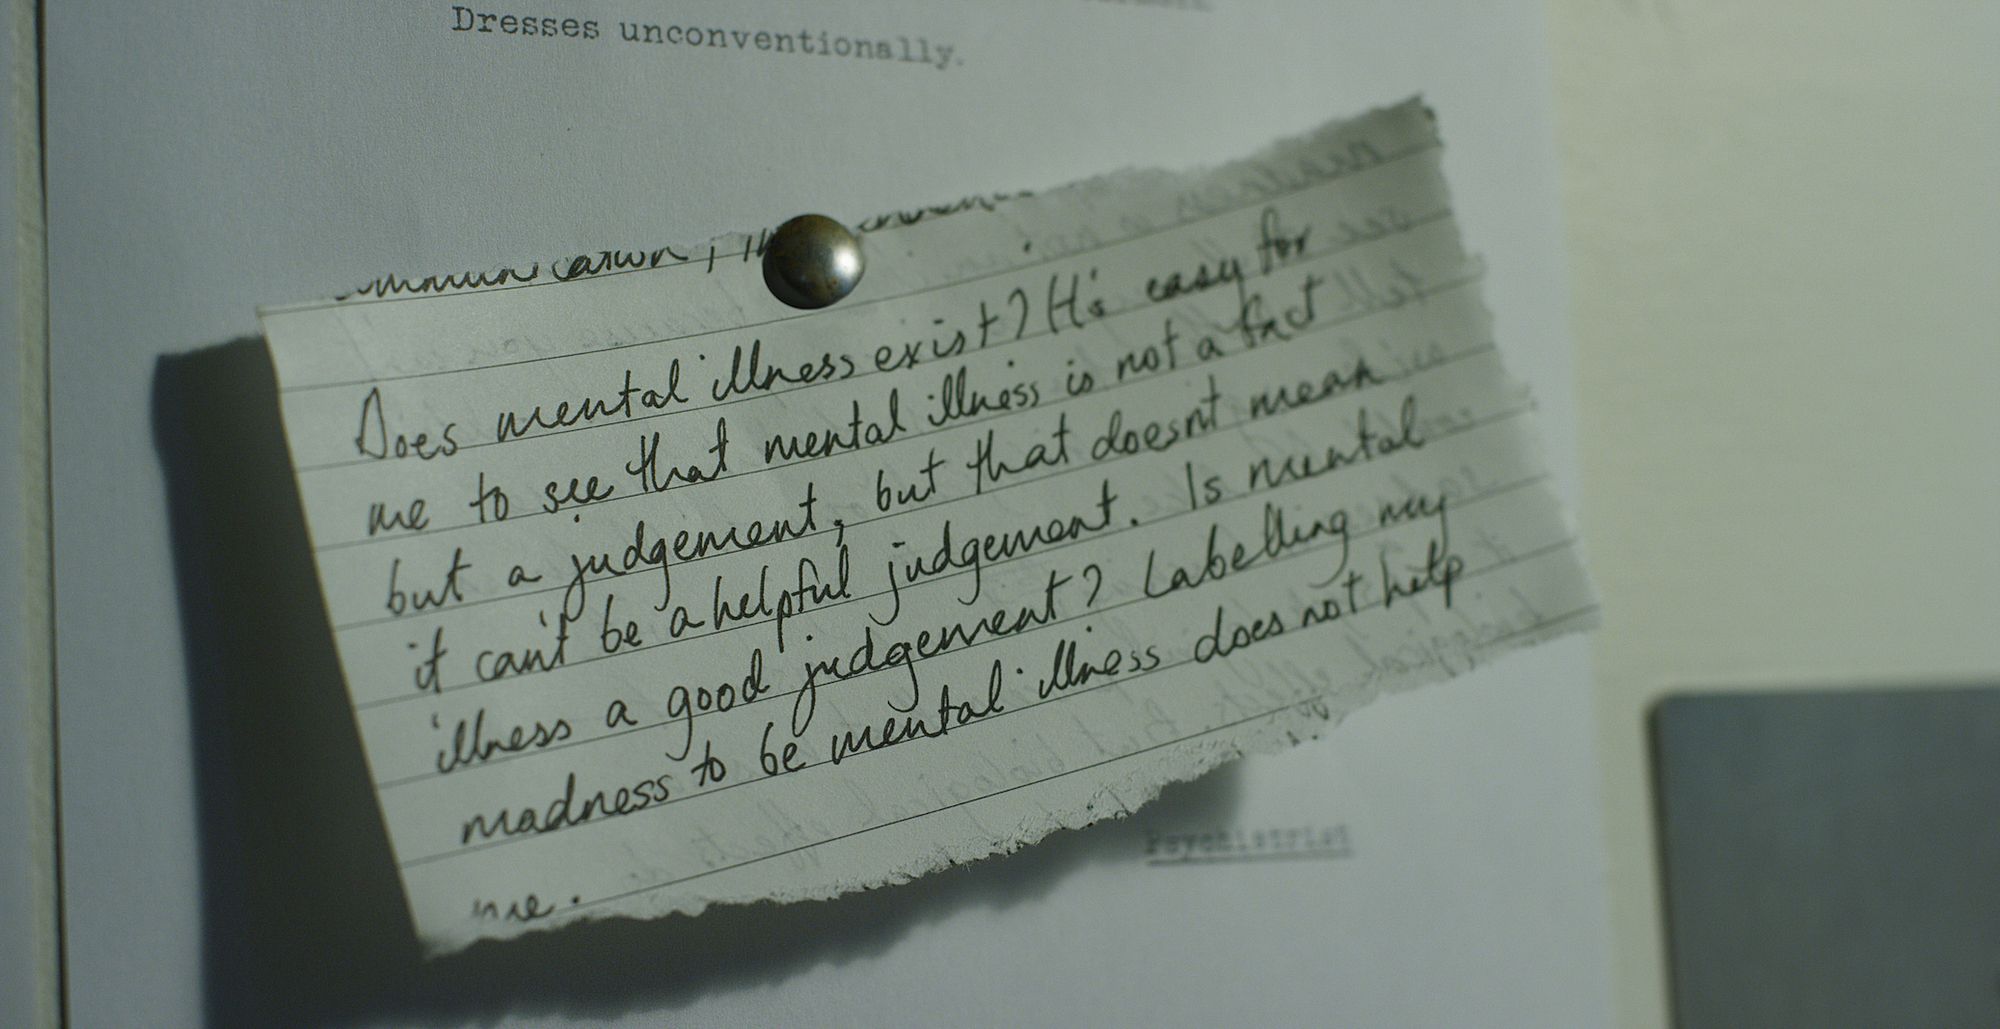 Dresses unconventionally.
Does mental illness exist? It's easy for
me to see that mental illness is not a fact
but a judgement, but that doesn't mean
it can't be a helpful judgement. Is mental
illness a good judgement? Labelling my
madness to be mental illness does not help
me.
Psychiatrist